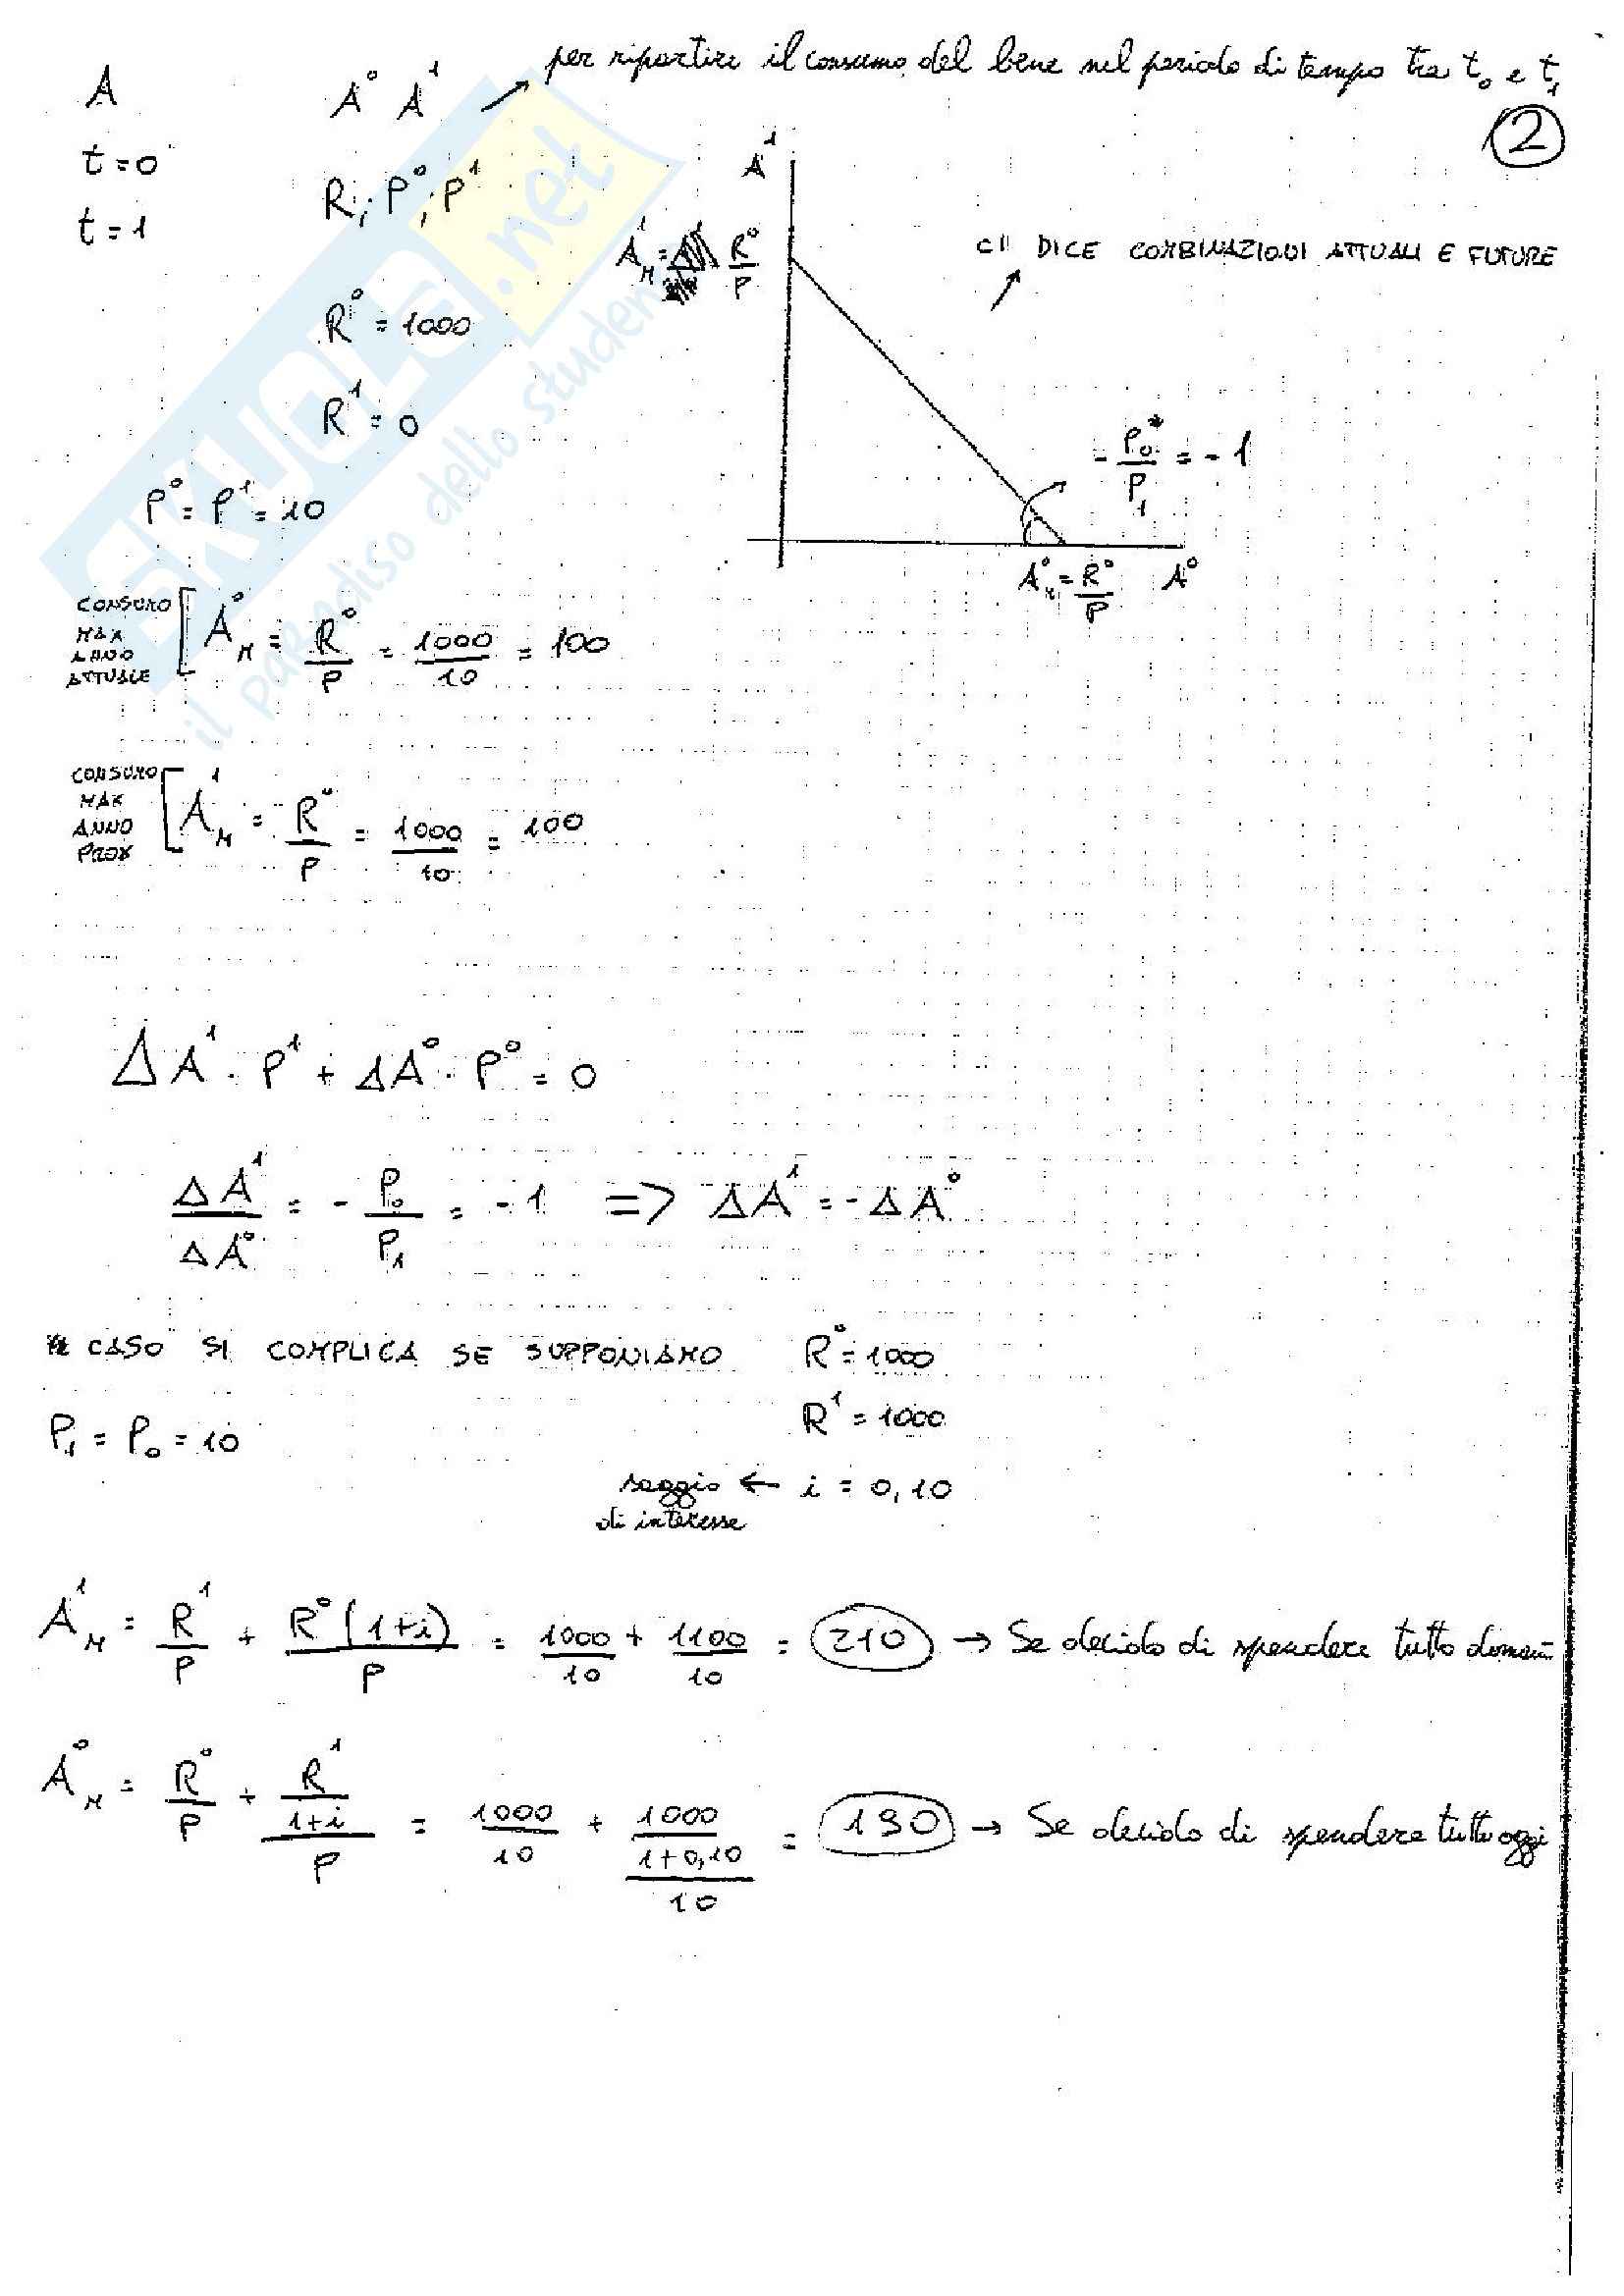 per ripartire il consumo del bene nel periodo di tempo tra t₀ e t₁
A A⁰ A¹ →
2
t=0
R; P⁰; P¹
t=1
A¹
A¹_M = R⁰/P
CI DICE COMBINAZIONI ATTUALI E FUTURE
R⁰ = 1000
R¹ = 0
- P₀/P₁ = -1
P⁰ = P¹ = 10
A⁰_M = R⁰/P A⁰
CONSUMO
MAX
ANNO
ATTUALE
A⁰_M = R⁰/P = 1000/10 = 100
CONSUMO
MAX
ANNO
PROX
A¹_M = R⁰/P = 1000/10 = 100
ΔA¹ · P¹ + ΔA⁰ · P⁰ = 0
ΔA¹/ΔA⁰ = - P₀/P₁ = -1 => ΔA¹ = -ΔA⁰
CASO SI COMPLICA SE SUPPONIAMO R⁰ = 1000
R¹ = 1000
P₁ = P₀ = 10
saggio ← i = 0,10
di interesse
A¹_M = R¹/P + R⁰(1+i)/P = 1000/10 + 1100/10 = 210 → Se decido di spendere tutto domani
A⁰_M = R⁰/P + (R¹/(1+i))/P = 1000/10 + (1000/(1+0,10))/10 = 190 → Se decido di spendere tutto oggi
SKUOLA.net
il paradiso dello studente